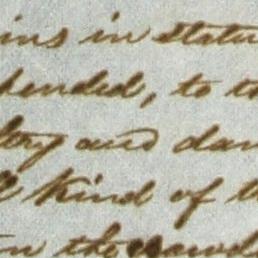 ins in statu
pended, to th
ltry and dan
kind of th
in the